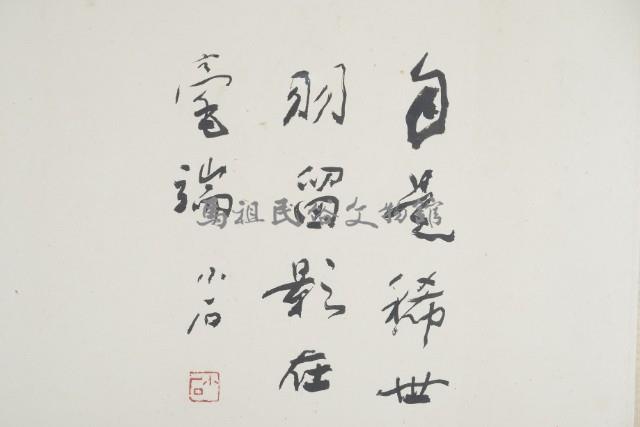 自是稀世
羽留影在
毫端
小石
小石
馬祖民俗文物館